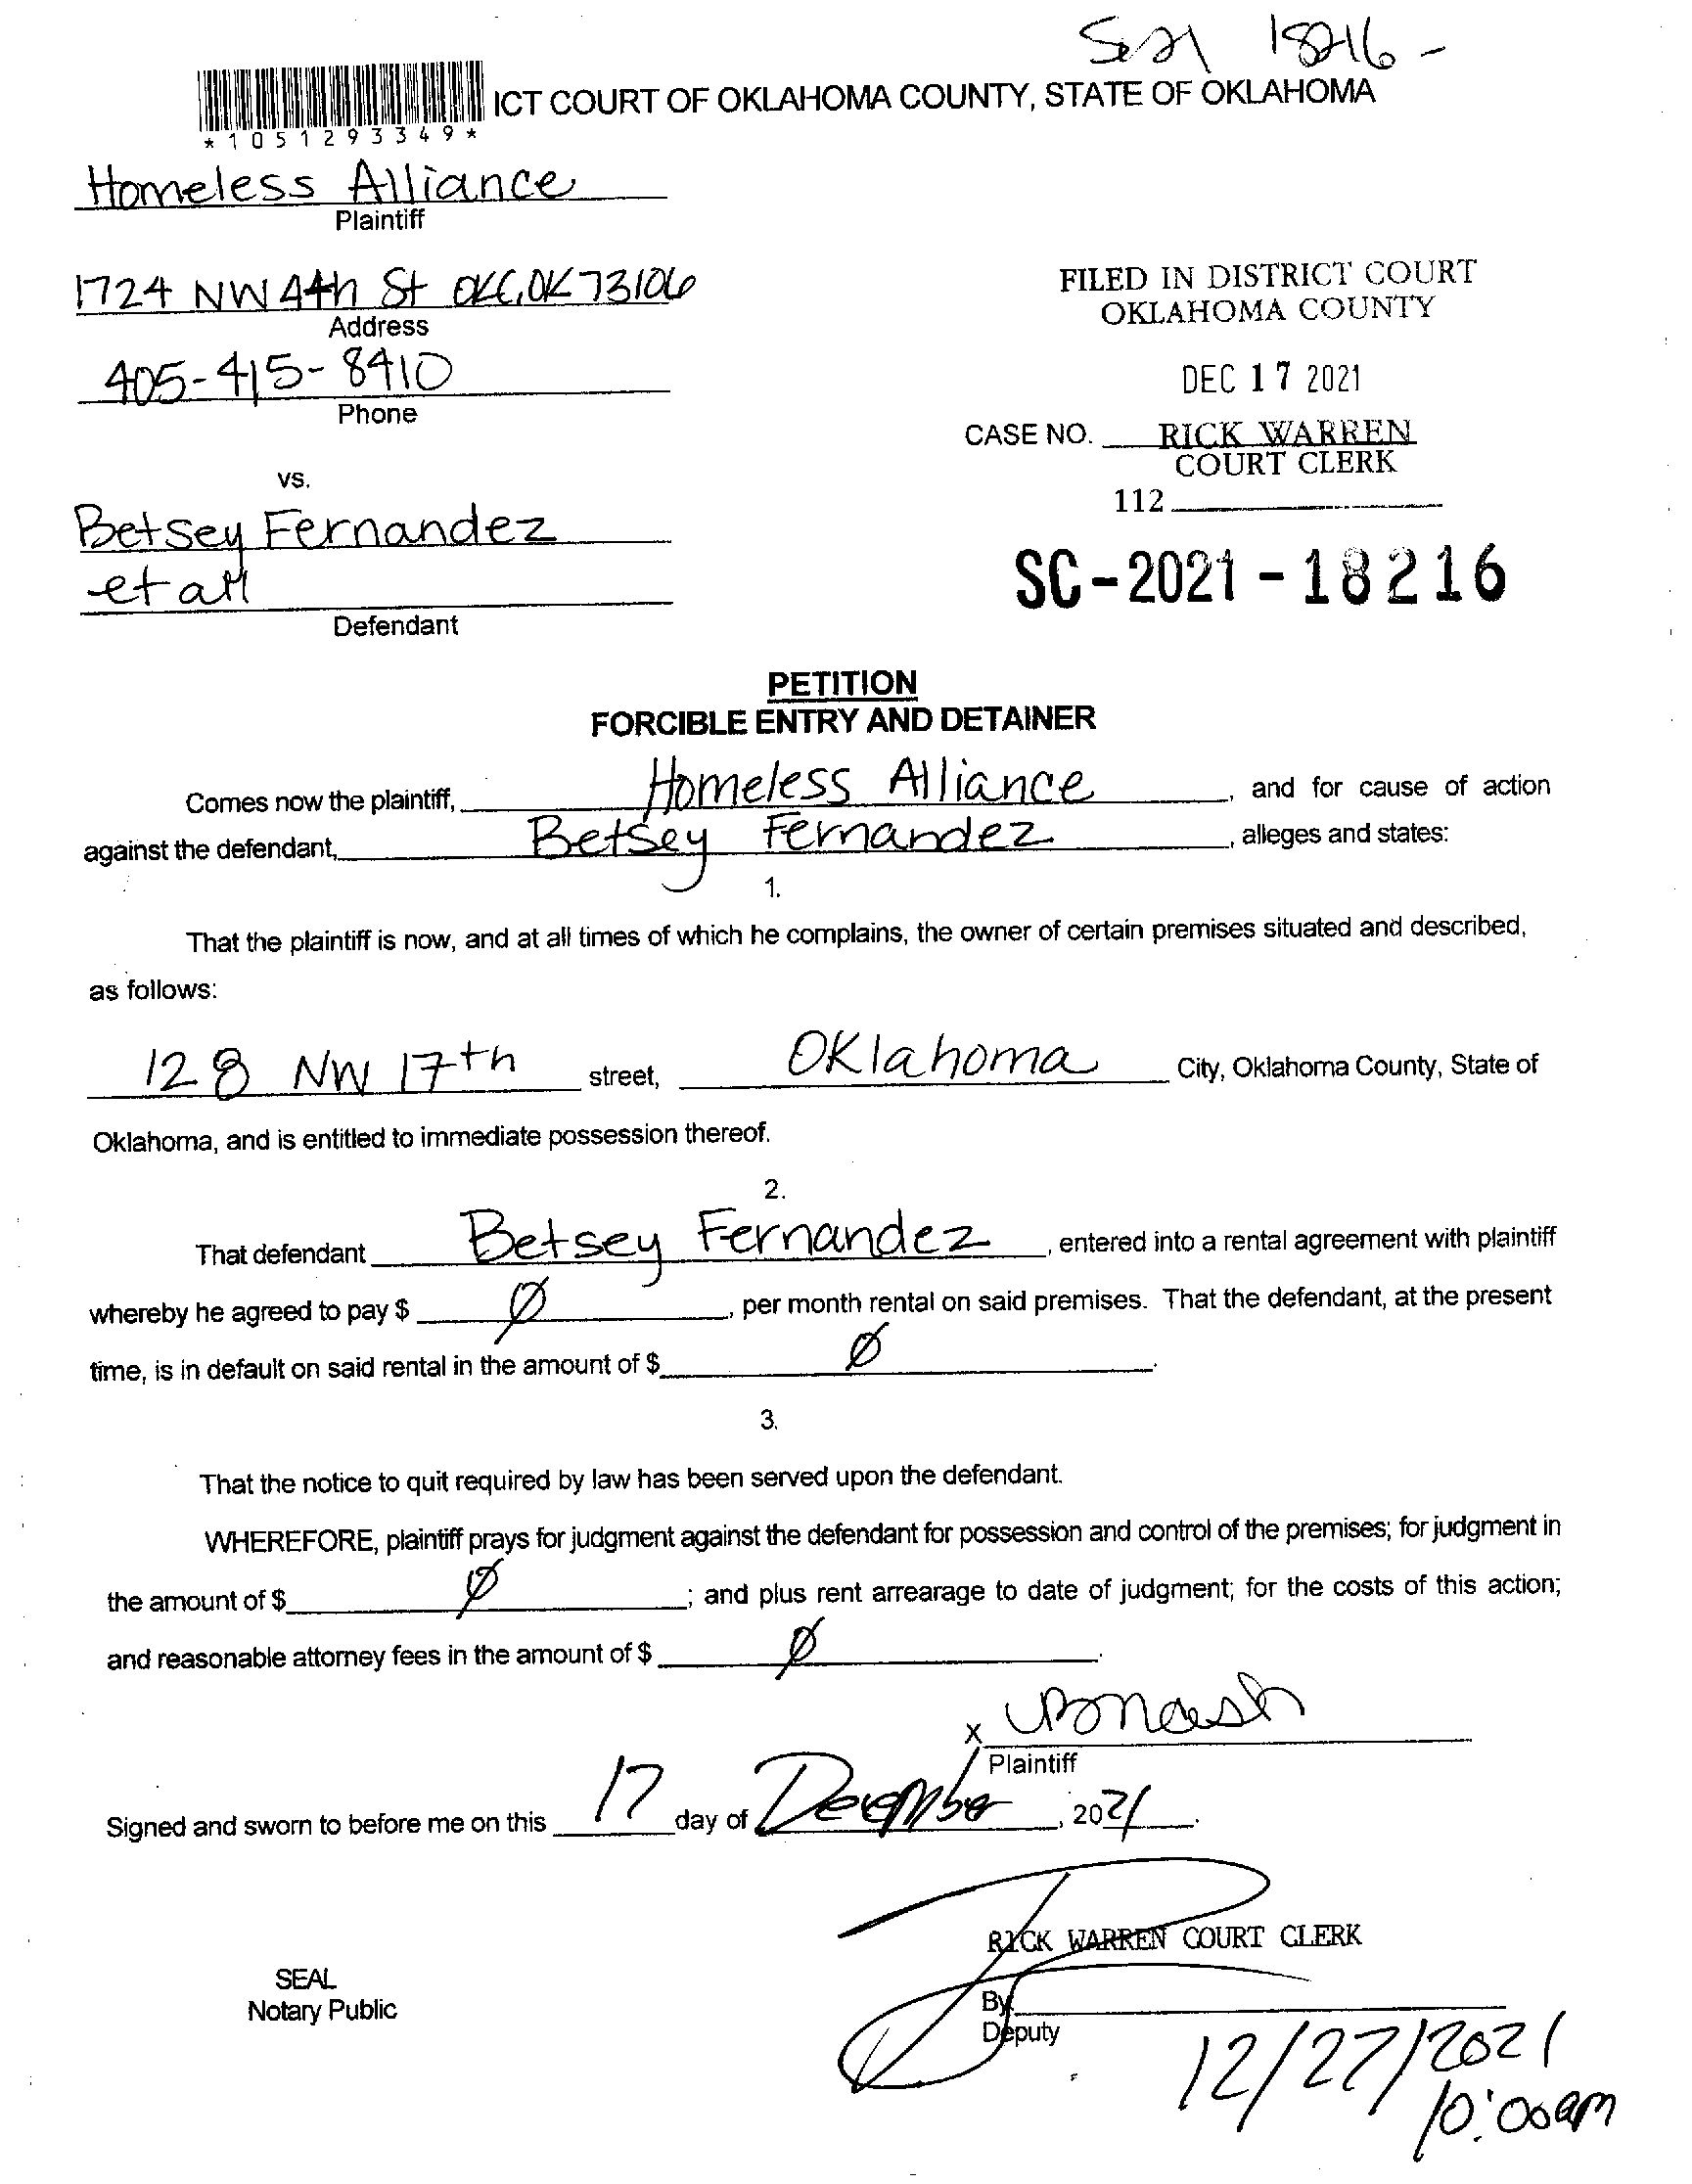 18216 -
ICT COURT OF OKLAHOMA COUNTY, STATE OF OKLAHOMA
*1051293349*
Homeless Alliance
Plaintiff
1724 NW 4th St OKC, OK 73106
Address
405-415-8410
Phone
vs.
Betsey Fernandez
et all
Defendant
FILED IN DISTRICT COURT
OKLAHOMA COUNTY
DEC 17 2021
CASE NO. RICK WARREN
COURT CLERK
112
SC-2021-18216
PETITION
FORCIBLE ENTRY AND DETAINER
Comes now the plaintiff, Homeless Alliance, and for cause of action
against the defendant, Betsey Fernandez, alleges and states:
1.
That the plaintiff is now, and at all times of which he complains, the owner of certain premises situated and described,
as follows:
128 NW 17th street, Oklahoma City, Oklahoma County, State of
Oklahoma, and is entitled to immediate possession thereof.
2.
That defendant Betsey Fernandez, entered into a rental agreement with plaintiff
whereby he agreed to pay $ Ø, per month rental on said premises. That the defendant, at the present
time, is in default on said rental in the amount of $ Ø.
3.
That the notice to quit required by law has been served upon the defendant.
WHEREFORE, plaintiff prays for judgment against the defendant for possession and control of the premises; for judgment in
the amount of $ Ø; and plus rent arrearage to date of judgment; for the costs of this action;
and reasonable attorney fees in the amount of $ Ø.
X
Plaintiff
Signed and sworn to before me on this 17 day of December, 2021.
RICK WARREN COURT CLERK
SEAL
Notary Public
By
Deputy
12/27/2021
10:00am